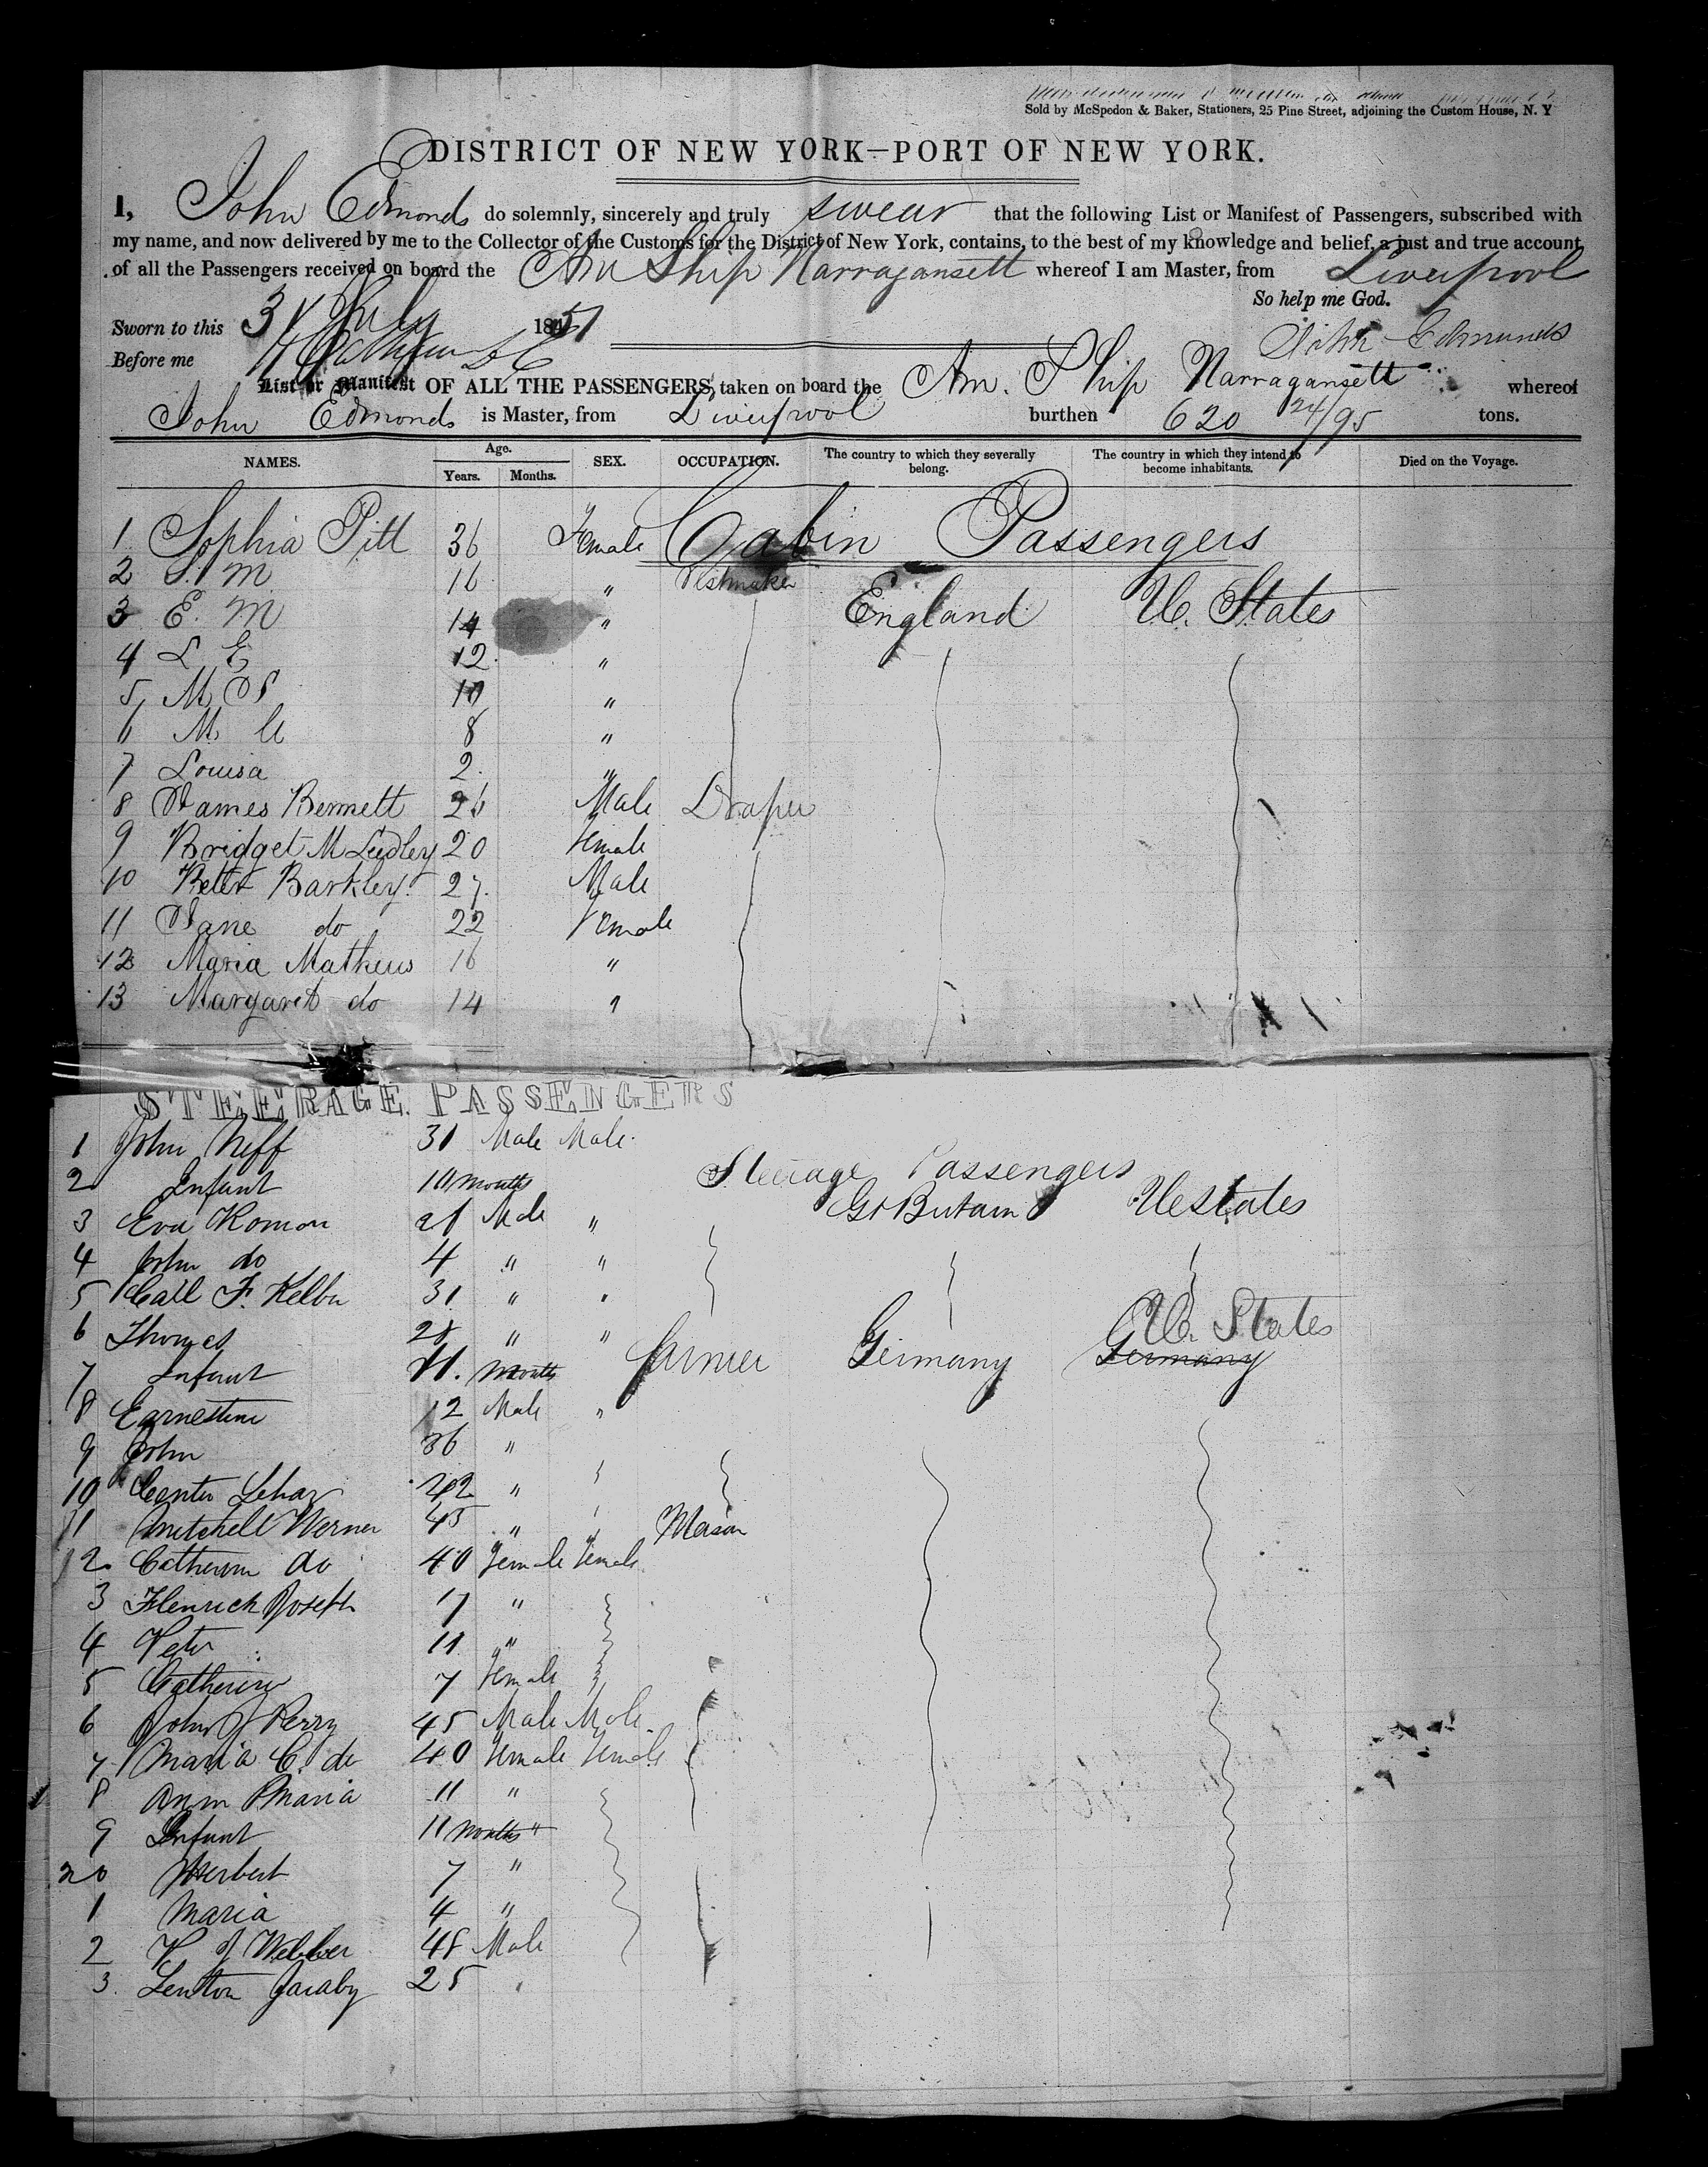 Sold by McSpedon & Baker, Stationers, 25 Pine Street, adjoining the Custom House, N. Y
DISTRICT OF NEW YORK—PORT OF NEW YORK.
I, John Edmonds do solemnly, sincerely and truly swear that the following List or Manifest of Passengers, subscribed with
my name, and now delivered by me to the Collector of the Customs for the District of New York, contains, to the best of my knowledge and belief, a just and true account
of all the Passengers received on board the Am Ship Narragansett whereof I am Master, from Liverpool
So help me God.
Sworn to this 31 July 1851
John Edmunds
Before me
List or Manifest OF ALL THE PASSENGERS, taken on board the Am. Ship Narragansett whereof
John Edmonds is Master, from Liverpool burthen 620 24/95 tons.
NAMES. Age. Years. Months. SEX. OCCUPATION. The country to which they severally belong. The country in which they intend to become inhabitants. Died on the Voyage.
1 Sophia Pitt 36 Female Cabin Passengers
2 S. M 16 "
3 E. M 14 " England U. States
4 L E 12 "
5 M S 10 "
6 M U 8 "
7 Louisa 2 "
8 James Bennett 26 Male Draper
9 Bridget M Leedley 20 Female
10 Peter Barkley 27 Male
11 Jane do 22 Female
12 Maria Matheus 16 "
13 Margaret do 14 "
STEERAGE PASSENGERS
1 John Neff 31 Male Male
2 Infant 10 months Steerage Passengers
3 Eva Roman 21 Male " Gt Britain U States
4 John do 4 " "
5 Call F. Kelbu 31 " "
6 Thomas 28 " " farmer Germany U. States
7 Infant 11. Months Germany
8 Earnestine 12 Male "
9 John 36 "
10 Center Lehaz 42 "
11 Mitchell Werner 45 " Mason
12 Catherine do 40 Female Female
3 Henrick Joseph 17 "
4 Peter 11 "
5 Catherine 7 Female
6 John J Perry 45 Male Male
7 Maria C. do 40 Female Female
8 Ann Maria 11 "
9 Infant 11 months "
20 Herbert 7 "
1 Maria 4 "
2 Webber 48 Male
3. Lenton Jacaby 25